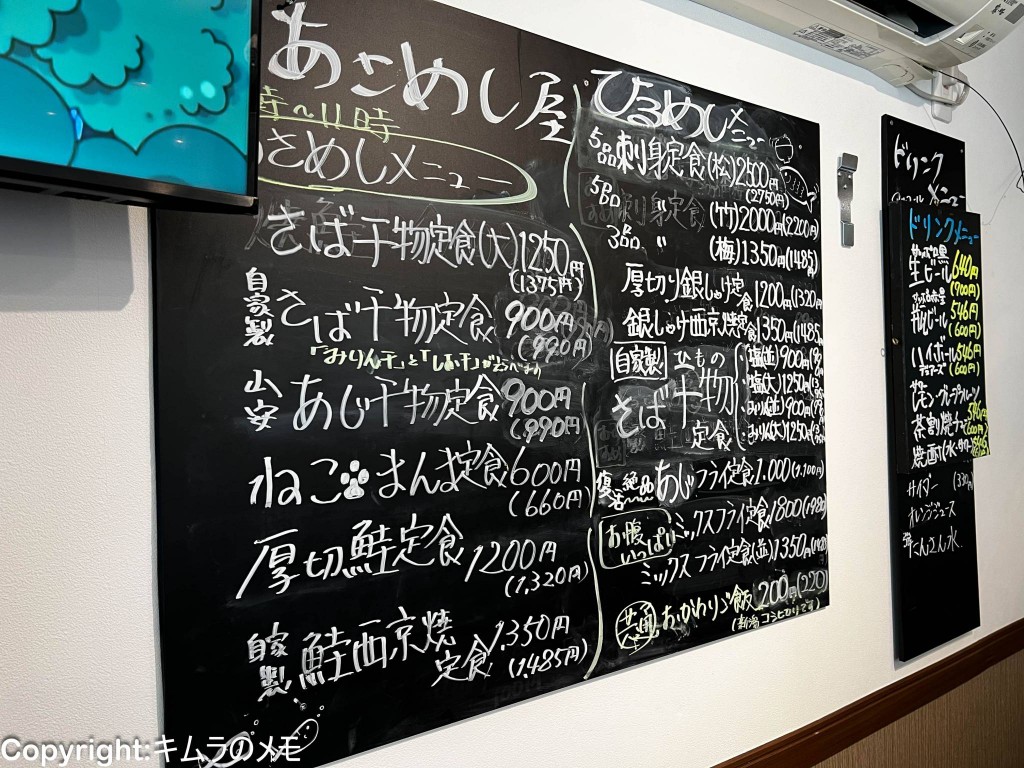 あさめし屋
時〜11時
さめしメニュー
さば干物定食(大)1250円
(1375円)
自家製 さば干物定食 900円
(990円)
「みりん干」と「しお干」が
山安 あじ干物定食 900円
(990円)
ねこまんま定食 600円
(660円)
厚切鮭定食 1200円
(1,320円)
自家製 鮭西京焼定食 1.350円
(1,485円)
ひるめしメニュー
5品 刺身定食(松)2500円
(2750円)
5品 刺身定食(竹)2000円(2200円)
3品 〃 (梅)1350円(1485円)
厚切り銀しゃけ定食 1200円(1320円)
銀しゃけ西京焼定食 1350円(1485円)
自家製 さば干物定食
ひもの
塩(並)900円
塩(大)1250円
みりん(並)900円
みりん(大)1250円
復活 絶品 あじフライ定食 1.000(1.100円)
お腹いっぱい ミックスフライ定食 1800(1980)
ミックスフライ定食(並)1350円
共通 おかわりご飯 200円(220)
(新潟コシヒカリです)
ドリンク
メニュー
ドリンクメニュー
生ビール 640円
(700円)
瓶ビール 546円
(600円)
ハイボール 546円
(600円)
レモン・グレープフルーツ
サイダー (330円)
オレンジジュース
たんさん水
Copyright:キムラのメモ